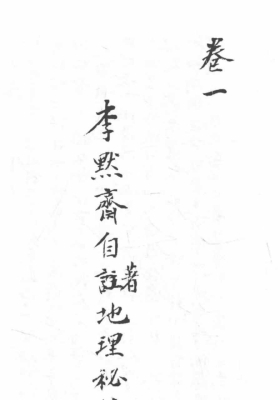 卷一
李默齋自註著地理秘